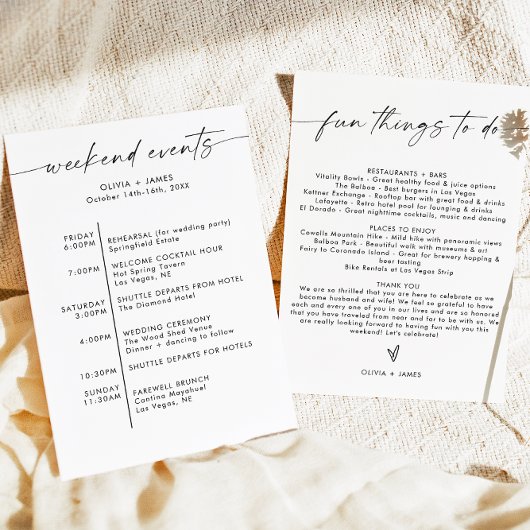 weekend events
OLIVIA + JAMES
October 14th-16th, 20XX
FRIDAY
6:00PM
REHEARSAL (for wedding party)
Springfield Estate
7:00PM
WELCOME COCKTAIL HOUR
Hot Spring Tavern
Las Vegas, NE
SATURDAY
3:00PM
SHUTTLE DEPARTS FROM HOTEL
The Diamond Hotel
4:00PM
WEDDING CEREMONY
The Wood Shed Venue
Dinner + dancing to follow
10:30PM
SHUTTLE DEPARTS FOR HOTELS
SUNDAY
11:30AM
FAREWELL BRUNCH
Cantina Mayahuel
Las Vegas, NE
fun things to do
RESTAURANTS + BARS
Vitality Bowls - Great healthy food & juice options
The Balboa - Best burgers in Las Vegas
Kettner Exchange - Rooftop bar with great food & drinks
Lafayette - Retro hotel pool for lounging & drinks
El Dorado - Great nighttime cocktails, music and dancing
PLACES TO ENJOY
Cowells Mountain Hike - Mild hike with panoramic views
Balboa Park - Beautiful walk with museums & art
Fairy to Coronado Island - Great for brewery hopping &
beer tasting
Bike Rentals at Las Vegas Strip
THANK YOU
We are so thrilled that you are here to celebrate as we
become husband and wife! We feel so grateful to have
each and every one of you in our lives and are so honored
that you have traveled from near and far to be with us. We
are really looking forward to having fun with you this
weekend! Let's celebrate!
OLIVIA + JAMES